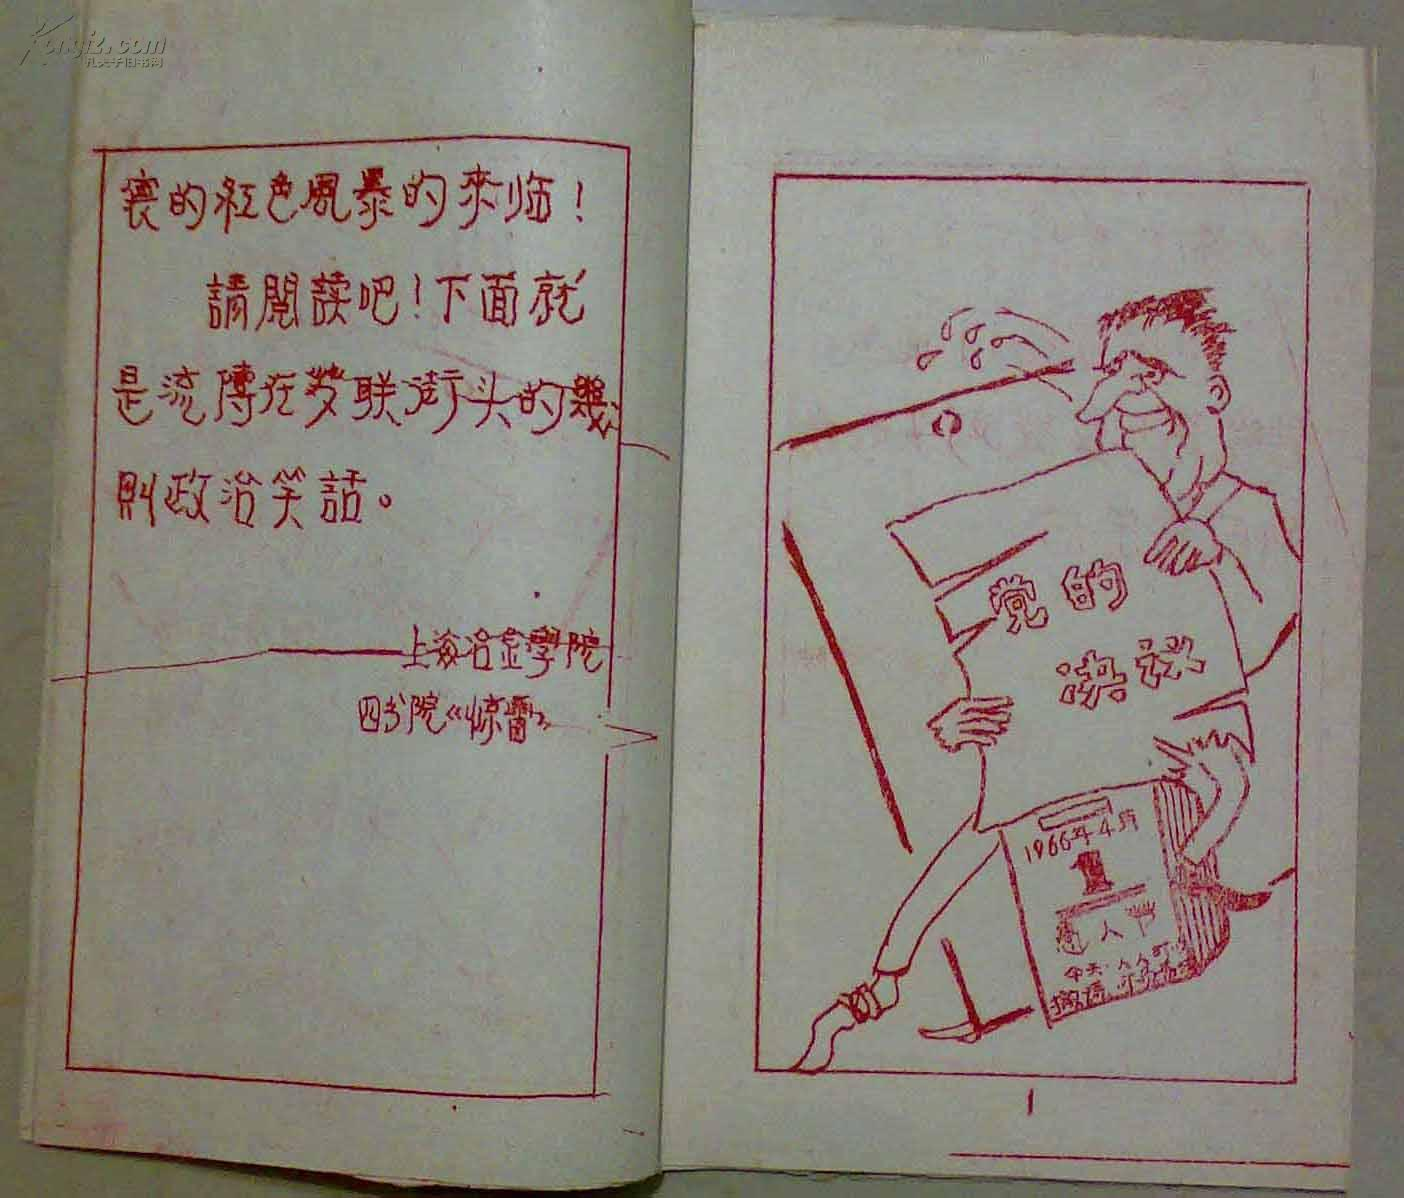 Kongfz.com
孔夫子旧书网
裏的紅色風暴的來临！
請閱读吧！下面就
是流傳在苏联街头的幾
則政治笑話。
——上海冶金學院
四分院《惊雷》
党的
决议
1966年4月
1
愚人节
今天，人人可以
撒谎
1